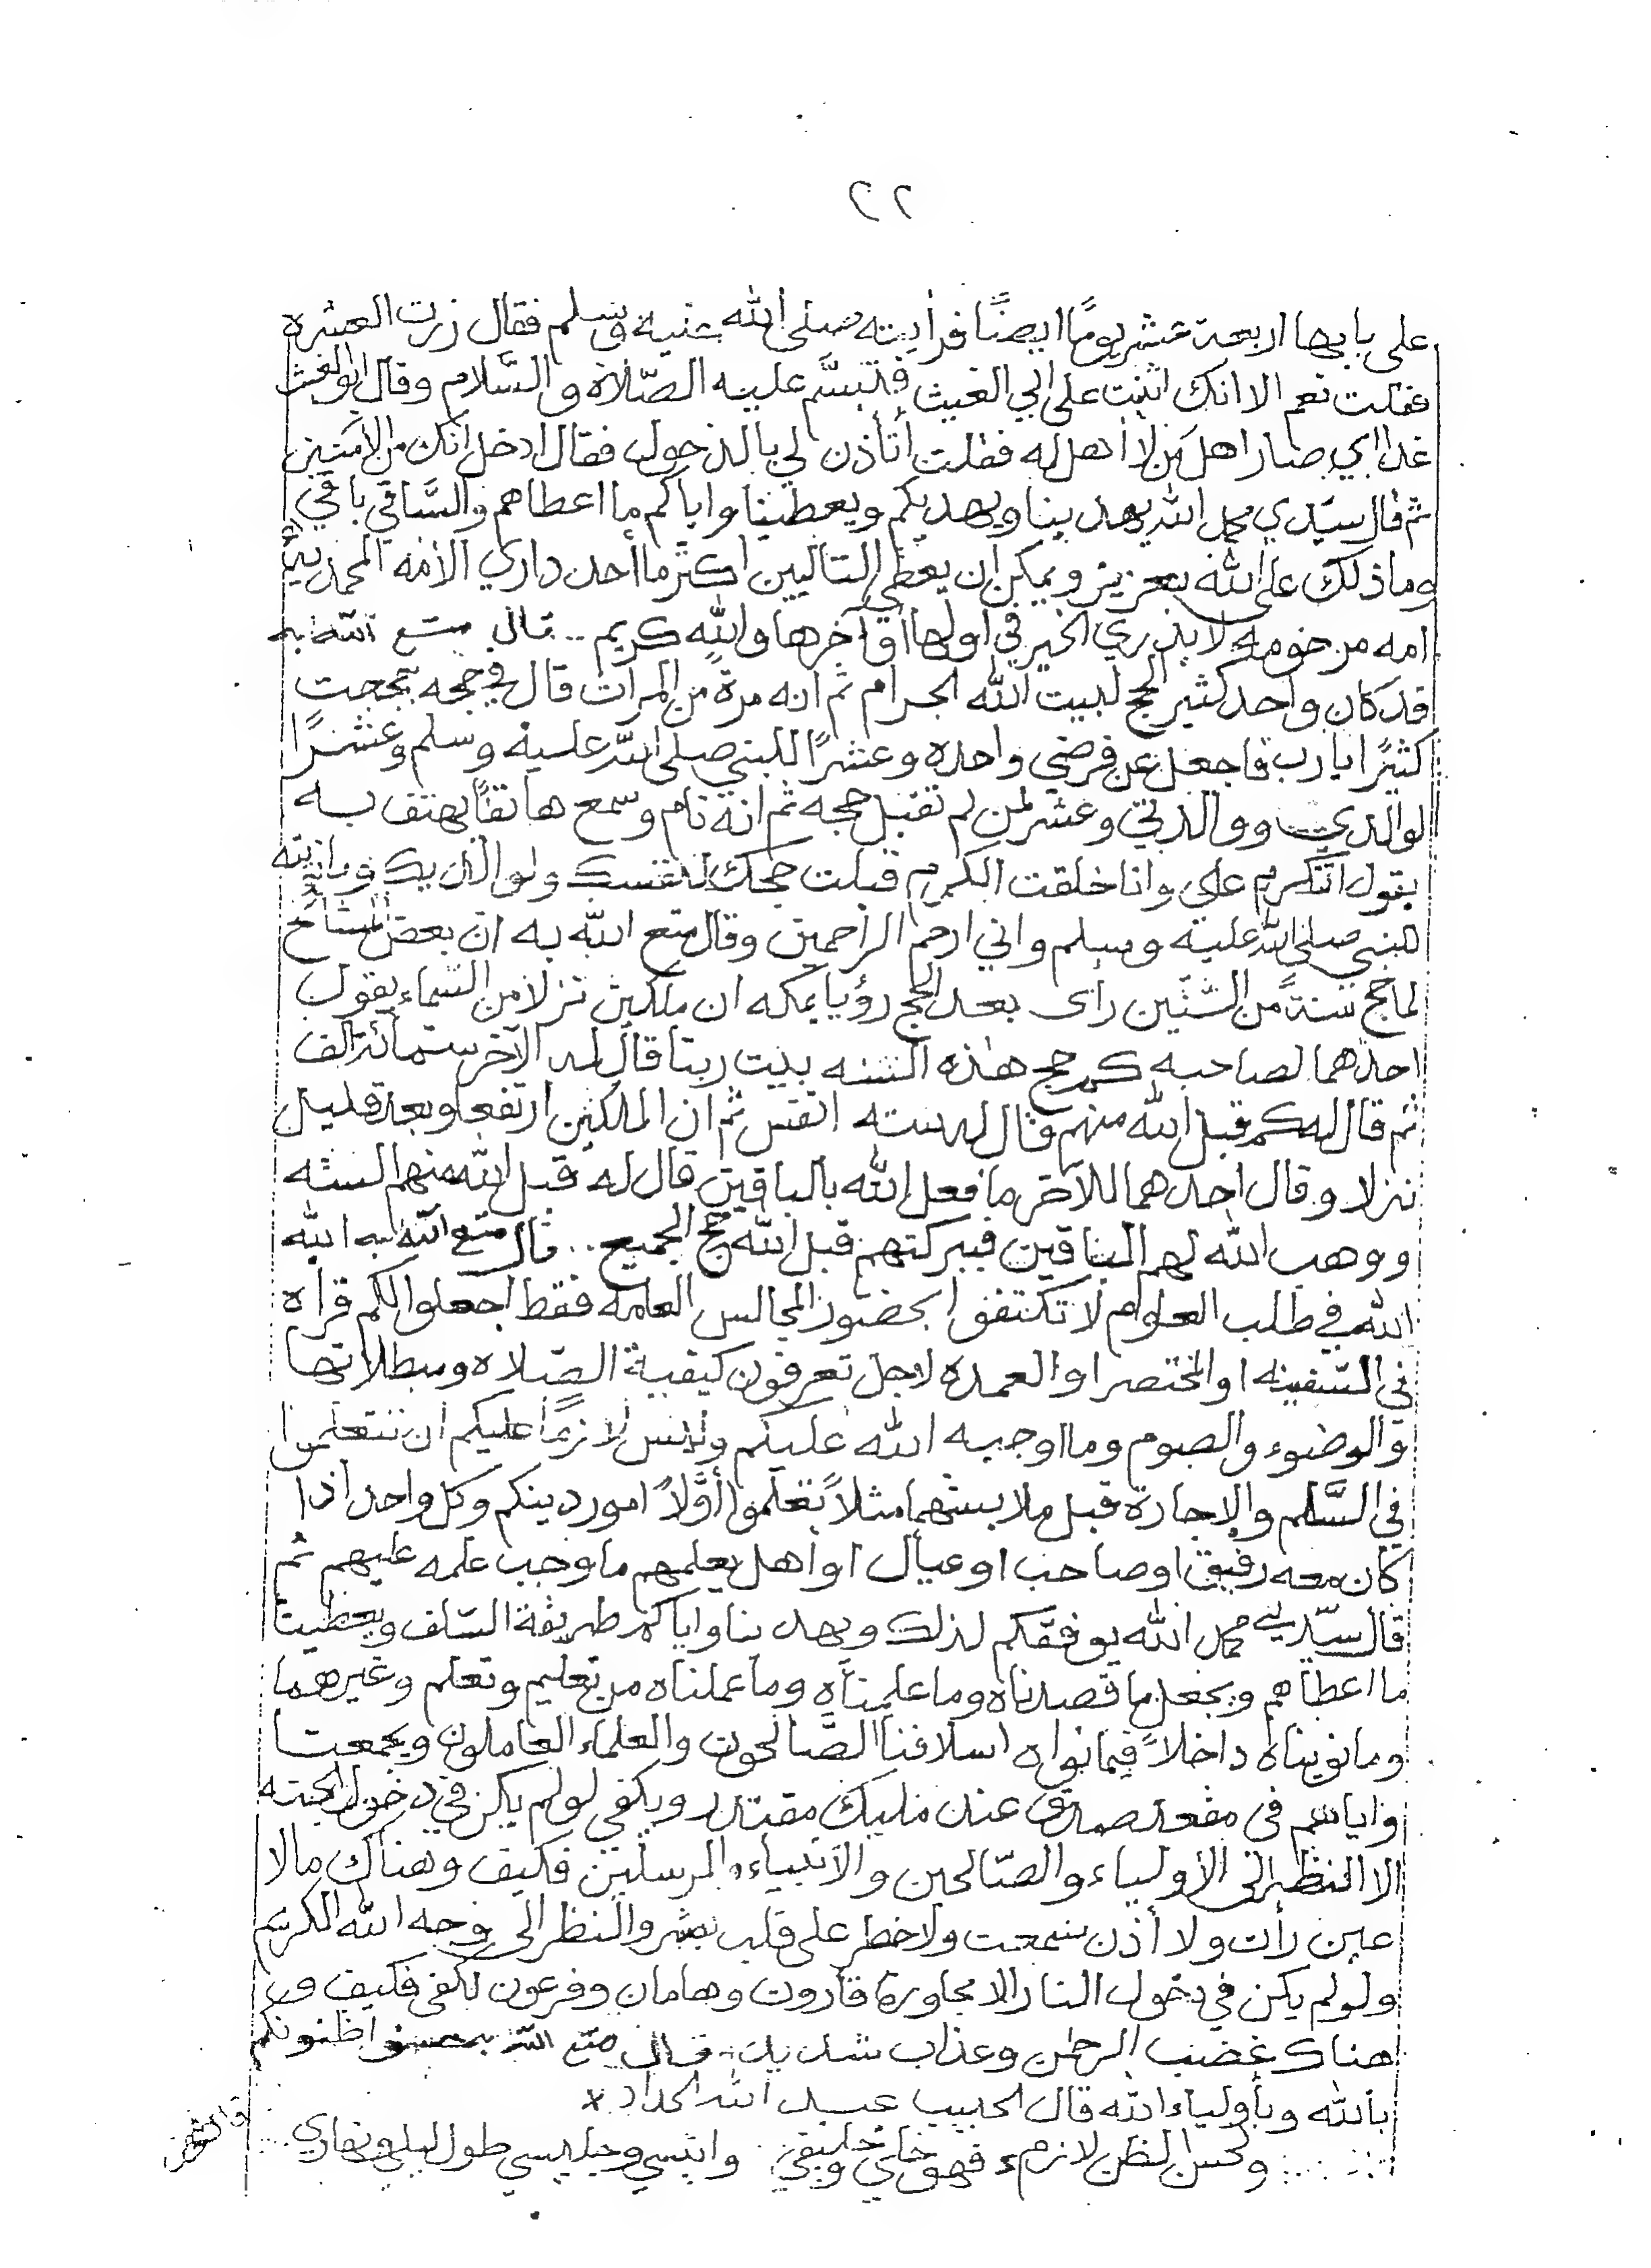 ٢٢
على بابها اربعة عشر يومًا ايضًا فرأيته صلى الله عليه وسلم فقال زرت العشره
فقلت نعم الا انك اثنيت على ابي الغيث فتبسَّم عليه الصّلاة والسَّلام وقال ابو الغيث
غدا ابي صار اهل من لا أهل له فقلت أتأذن لي بالدخول فقال ادخل انك من الآمنين
ثم قال سيّدي محمد الله يهدينا ويهديكم ويعطينا واياكم ما اعطاهم والسَّاقي باقي
وما ذلك على الله بعزيز ويمكن ان يعطي التاليين اكثر ما أحد داري الأمه المحمديّه
امه مرحومه لا يدرى الخير في اولها أو آخرها والله كريم .. قال متع الله به
قد كان واحد كثير الحج لبيت الله الحرام ثم انه مرةً من المرات قال في حجه حججت
كثيرًا يا رب فاجعل عن فرضي واحده وعشرًا للنبي صلى الله عليه وسلم وعشرًا
لوالدي ووالدتي وعشر لمن لم تقبل حجه ثم انه نام وسمع هاتفًا يهتف به
يقول أتتكرم علي وانا خلقت الكرم قبلت حجك لنفسك ولوالديك وما نويته
للنبي صلى الله عليه وسلم واني ارحم الراحمين وقال متع الله به ان بعض المشائخ
لما حج سنةً من السّنين رأى بعد الحج رؤيا بمكه ان ملكين نزلا من السماء يقول
احدهما لصاحبه كم حج هذه السنه بيت ربنا قال له الآخر ستمائة الف
ثم قال له كم قبل الله منهم قال له سته انفس ثم ان الملكين ارتفعا وبعد قليل
نزلا وقال احدهما للآخر ما فعل الله بالباقين قال له قبل الله منهم السته
ووهب الله لهم الباقين فببركتهم قبل الله حج الجميع .. قال متع الله به الله
الله في طلب العلوم لا تكتفوا بحضور المجالس العامه فقط اجعلوا لكم قراه
في السّفينه او المختصر او العمده لاجل تعرفون كيفية الصّلاه ومبطلاتها
والوضوء والصوم وما اوجبه الله عليكم وليس لازمًا عليكم ان تتعلموا
في السَّلم والإجارة قبل ملابستهما مثلاً تعلَّموا أوَّلاً امور دينكم وكل واحد اذا
كان معه رفيق او صاحب او عيال او اهل يعلمهم ما وجب علمه عليهم ثم
قال سيّدي محمد الله يوفقكم لذلك ويهدينا واياكم طريقة السّلف ويعطينا
ما اعطاهم ويجعل ما قصدناه وما علمناه وما عملناه من تعليم وتعلم وغيرهما
وما نويناه داخلاً فيما نواه اسلافنا الصَّالحون والعلماء العاملون ويجمعنا
واياهم في مقعد صدق عند مليك مقتدر ويكفي لو لم يكن في دخول الجنه
الا النظر الى الأولياء والصّالحين والأنبياء والمرسلين فكيف وهناك مالا
عين رأت ولا أذن سمعت ولا خطر على قلب بشر والنظر الى وجه الله الكريم
ولو لم يكن في دخول النار الا مجاورة قارون وهامان وفرعون لكفى فكيف و
هناك غضب الرحمن وعذاب شديد .. قال متع الله به حسنوا ظنونكم
بالله وبأولياء الله قال الحبيب عبد الله الحداد ×
وحسن الظن لازم فهو خلي وحليفي وانيسي وجليسي طول ليلي ونهاري